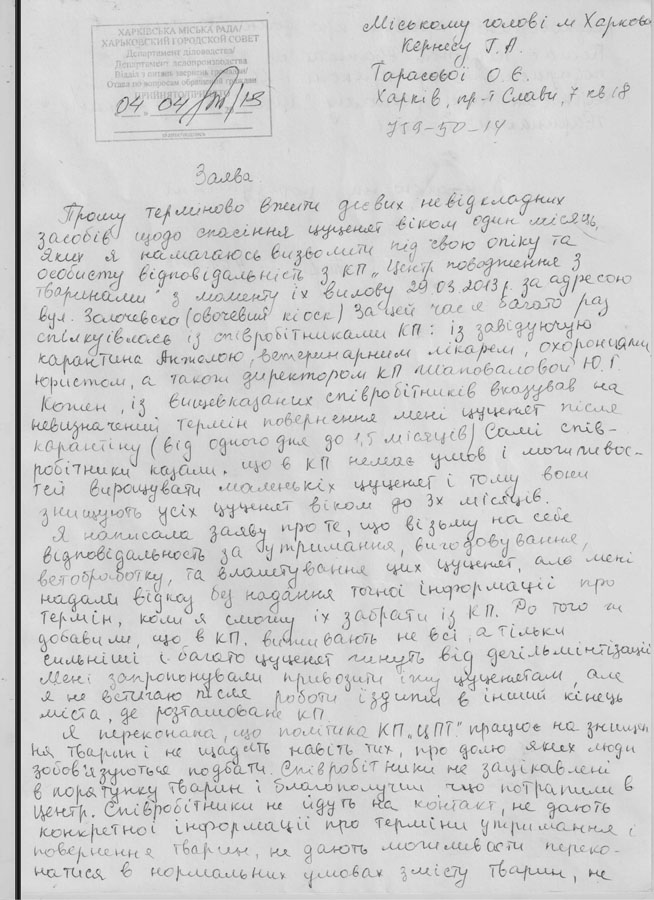 ХАРКІВСЬКА МІСЬКА РАДА/
ХАРЬКОВСКИЙ ГОРОДСКОЙ СОВЕТ
Департамент діловодства/
Департамент делопроизводства
Відділ з питань звернень громадян/
Отдел по вопросам обращений граждан
04 04 13
Міському голові м Харкова
Кернесу Г. А.
Тарасової О. Є.
Харків, пр-т Слави, 7 кв 18
719-50-14
Заява.
Прошу терміново вжити дієвих невідкладних
засобів щодо спасіння цуценят віком один місяць,
яких я намагаюсь визволити під свою опіку та
особисту відповідальність з КП „Центр поводження з
тваринами" з моменту їх вилову 29.03.2013р. за адресою
вул. Золочевска (овочевий кіоск) За цей час я багато раз
спілкуівлась із співробітниками КП: із завідуючую
карантина Анжелою, ветеринарним лікарем, охоронцами,
юристом, а також директором КП Шаповаловой Ю. Г.
Кожен, із вищевказаних співробітників вказував на
невизначений термін повернення мені цуценят після
карантіну (від одного дня до 1,5 місяців) Самі спів-
робітники казали, що в КП немає умов і можливос-
тей вирощувати маленькіх цуценят і тому вони
знищують усіх цуценят віком до 3х місяців.
Я написала заяву про те, що візьму на себе
відповідальность за утримання, вигодовування,
ветобработку, та влаштування цих цуценят, але мені
надали відказ без надання точної інформації про
термін, коли я сможу їх забрати із КП. До того ж
добавили, що в КП. виживають не всі, а тільки
сильніші і багато цуценят гинуть від дегільмінтізації
Мені запропонували привозити їжу цуценятам, але
я не встигаю після роботи їздити в інший кінець
міста, де розташоване КП.
Я переконана, що політика КП „ЦПТ" працює на знищен
ня тварин і не щадить навіть тих, про долю яких люди
зобов'язуються подбати. Співробітники не зацікавлені
в порятунку тварин і благополучии що потрапили в
Центр. Співробітники не йдуть на контакт, не дають
конкретної інформації про терміни утримання і
повернення тварин, не дають можливасти переко-
натися в нормальних умовах змісту тварин, не